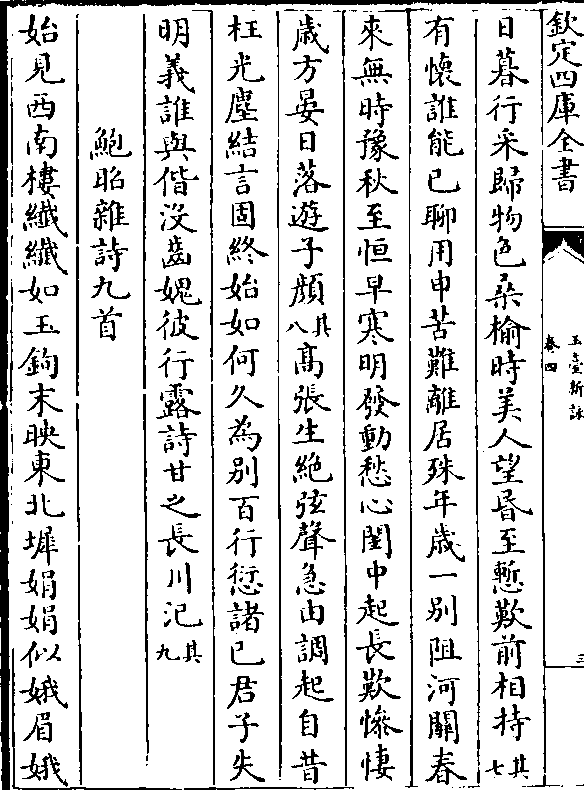 欽定四庫全書
玉臺新詠
卷四
三
日暮行采歸物色桑榆時美人望昏至慙歎前相持其七
有懷誰能已聊用申苦難離居殊年歲一別阻河關春
來無時豫秋至恒早寒明發動愁心閨中起長歎慘悽
歳方晏日落遊子顔其八髙張生絶弦聲急由調起自昔
枉光塵結言固終始如何久為别百行愆諸已君子失
明義誰與偕没齒愧彼行露詩甘之長川汜其九
鮑昭雜詩九首
始見西南樓纎纎如玉鉤末映東北墀娟娟似娥眉娥